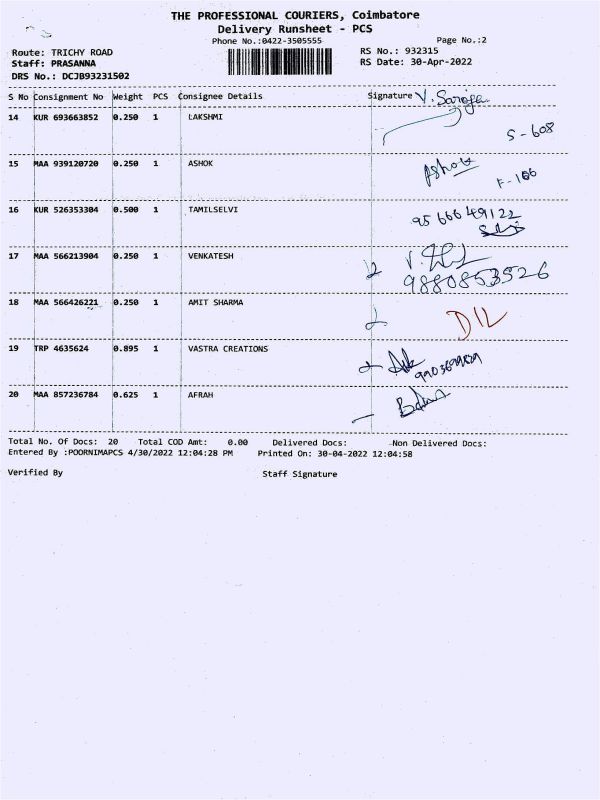 THE PROFESSIONAL COURIERS, Coimbatore
Delivery Runsheet - PCS
Phone No.:0422-3505555 Page No.:2
Route: TRICHY ROAD RS No.: 932315
Staff: PRASANNA RS Date: 30-Apr-2022
DRS No.: DCJB93231502
S No Consignment No Weight PCS Consignee Details Signature V. Saroja
14 KUR 693663852 0.250 1 LAKSHMI
S-608
15 MAA 939120720 0.250 1 ASHOK Ashok
F-166
16 KUR 526353304 0.500 1 TAMILSELVI
17 MAA 566213904 0.250 1 VENKATESH
9880853526
18 MAA 566426221 0.250 1 AMIT SHARMA DIL
19 TRP 4635624 0.895 1 VASTRA CREATIONS
20 MAA 857236784 0.625 1 AFRAH
Total No. Of Docs: 20 Total COD Amt: 0.00 Delivered Docs: Non Delivered Docs:
Entered By :POORNIMAPCS 4/30/2022 12:04:28 PM Printed On: 30-04-2022 12:04:58
Verified By Staff Signature